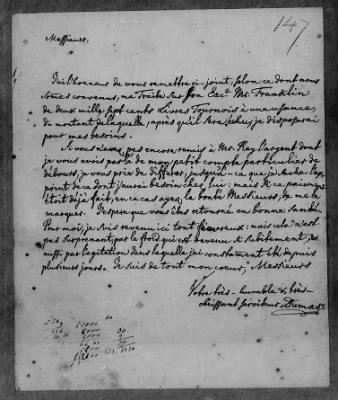 147
Messieurs,
J'ai l'honneur de vous remettre ci-joint, selon ce dont nous
sommes convenus, ma Traite sur Son Exc.e Mr. Franklin
de deux mille sept cents Livres Tournois à une usance,
du montant de laquelle, après qu'il sera échu, je disposerai
pour mes besoins.
Si vous n'avez pas encore remis à Mr. Ray l'argent dont
je vous avois parlé de mon petit compte particulier de
débours, je vous prie de différer, jusqu'à ce que je sache
point de ce dont j'aurai besoin chez lui: mais si ce paiement
étoit déjà fait, en ce cas ayez la bonté Messieurs, de me le
marquer. J'espere que vous êtes retourné en bonne santé.
Pour moi, je suis revenu ici tout fievreux: mais cela n'est
pas surprenant, par le froid qui est survenu si subitement, &
aussi par l'agitation dans laquelle j'ai constamment été depuis
plusieurs jours. Je suis de tout mon coeur, Messieurs
Votre très-humble & très-
obéissant serviteur Dumas